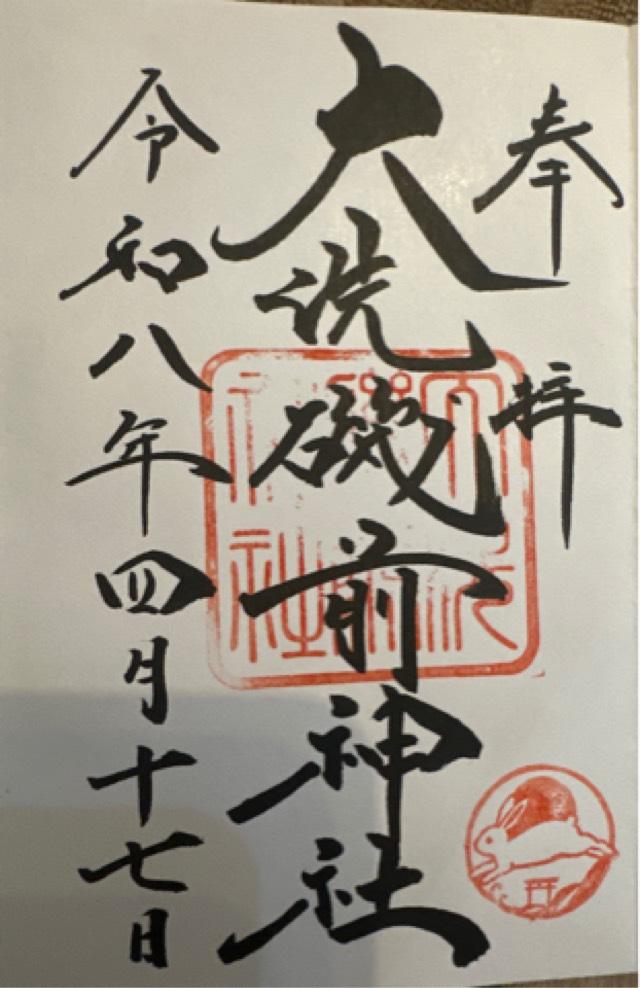 奉拝
大洗磯前神社
令和八年四月十七日